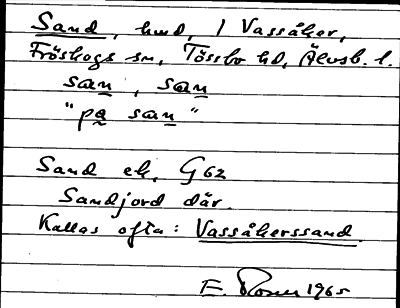 Sand, hmd, i Vassåker,
Fröskogs sn, Tössbo hd, Älvsb. l.
san, san
"på san"
Sand ek. G62
Sandjord där.
Kallas ofta: Vassåkerssand.
E. 1965